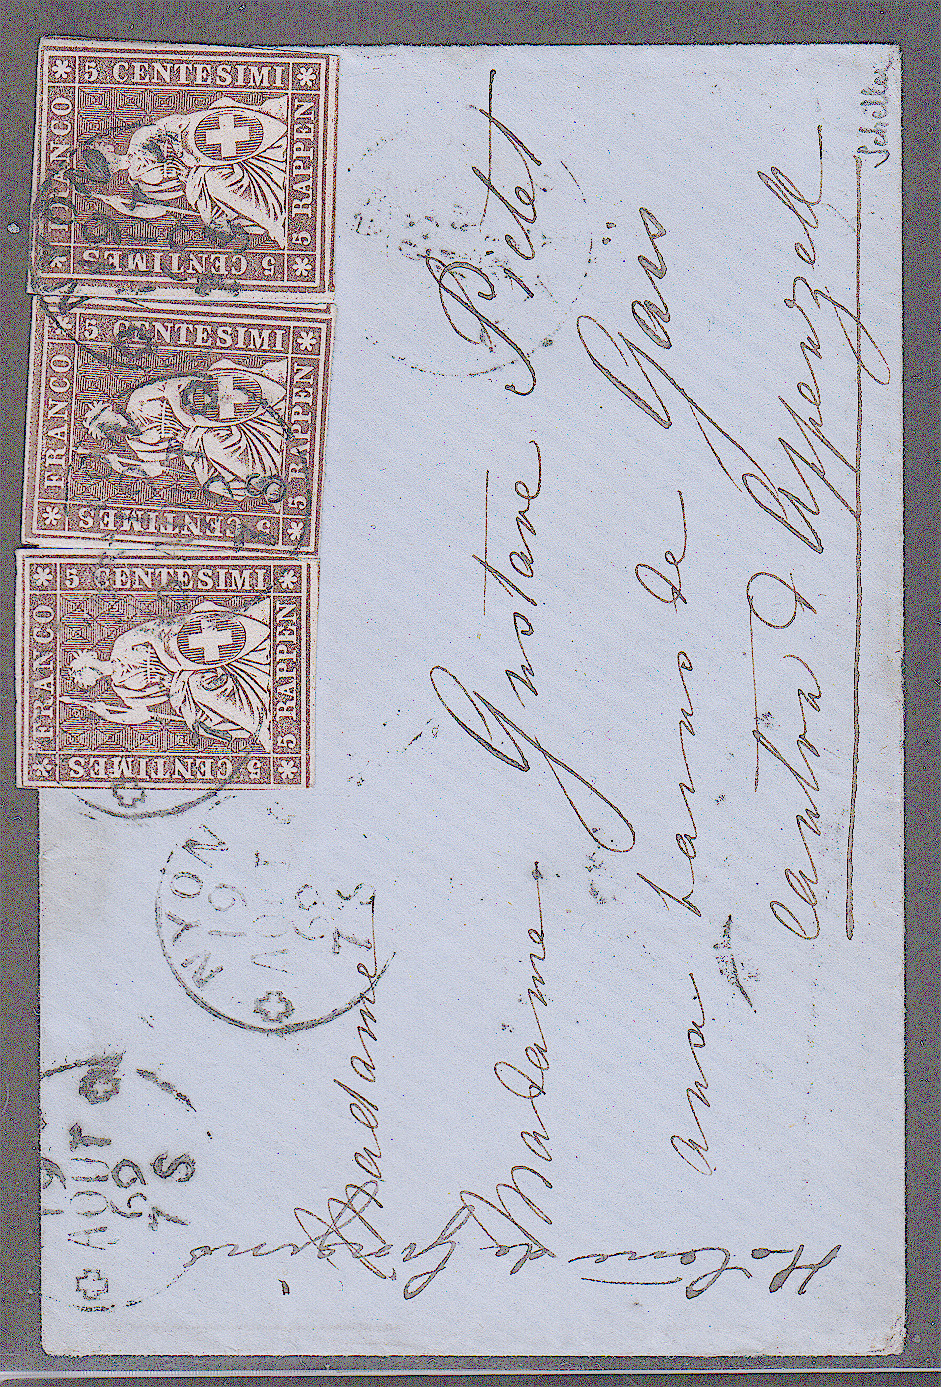 5 CENTESIMI
FRANCO
5 RAPPEN
5 CENTIMES
5 CENTESIMI
FRANCO
5 RAPPEN
5 CENTIMES
5 CENTESIMI
FRANCO
5 RAPPEN
5 CENTIMES
NYON
19
AOUT
59
7 S
19
AOUT
59
7 S
Madame
Madame Gustave Pictet
aux bains de Gäis
Canton d'Appenzell